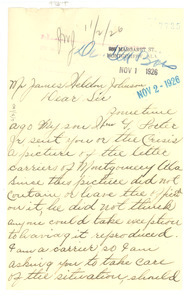 11/2/26
NOV 1 1926
NOV 2 - 1926
Mr James Weldon Johnson
Dear Sir
Sometime
ago My son Wm G. Porter
Jr sent you or the Crisis
a picture of the letter
carriers of Montgomery Ala
since this picture did not
contain or have the
on it he did not think
anyone could take exception
to having it reproduced.
I am a carrier so I am
asking you to take care
of the situation, should